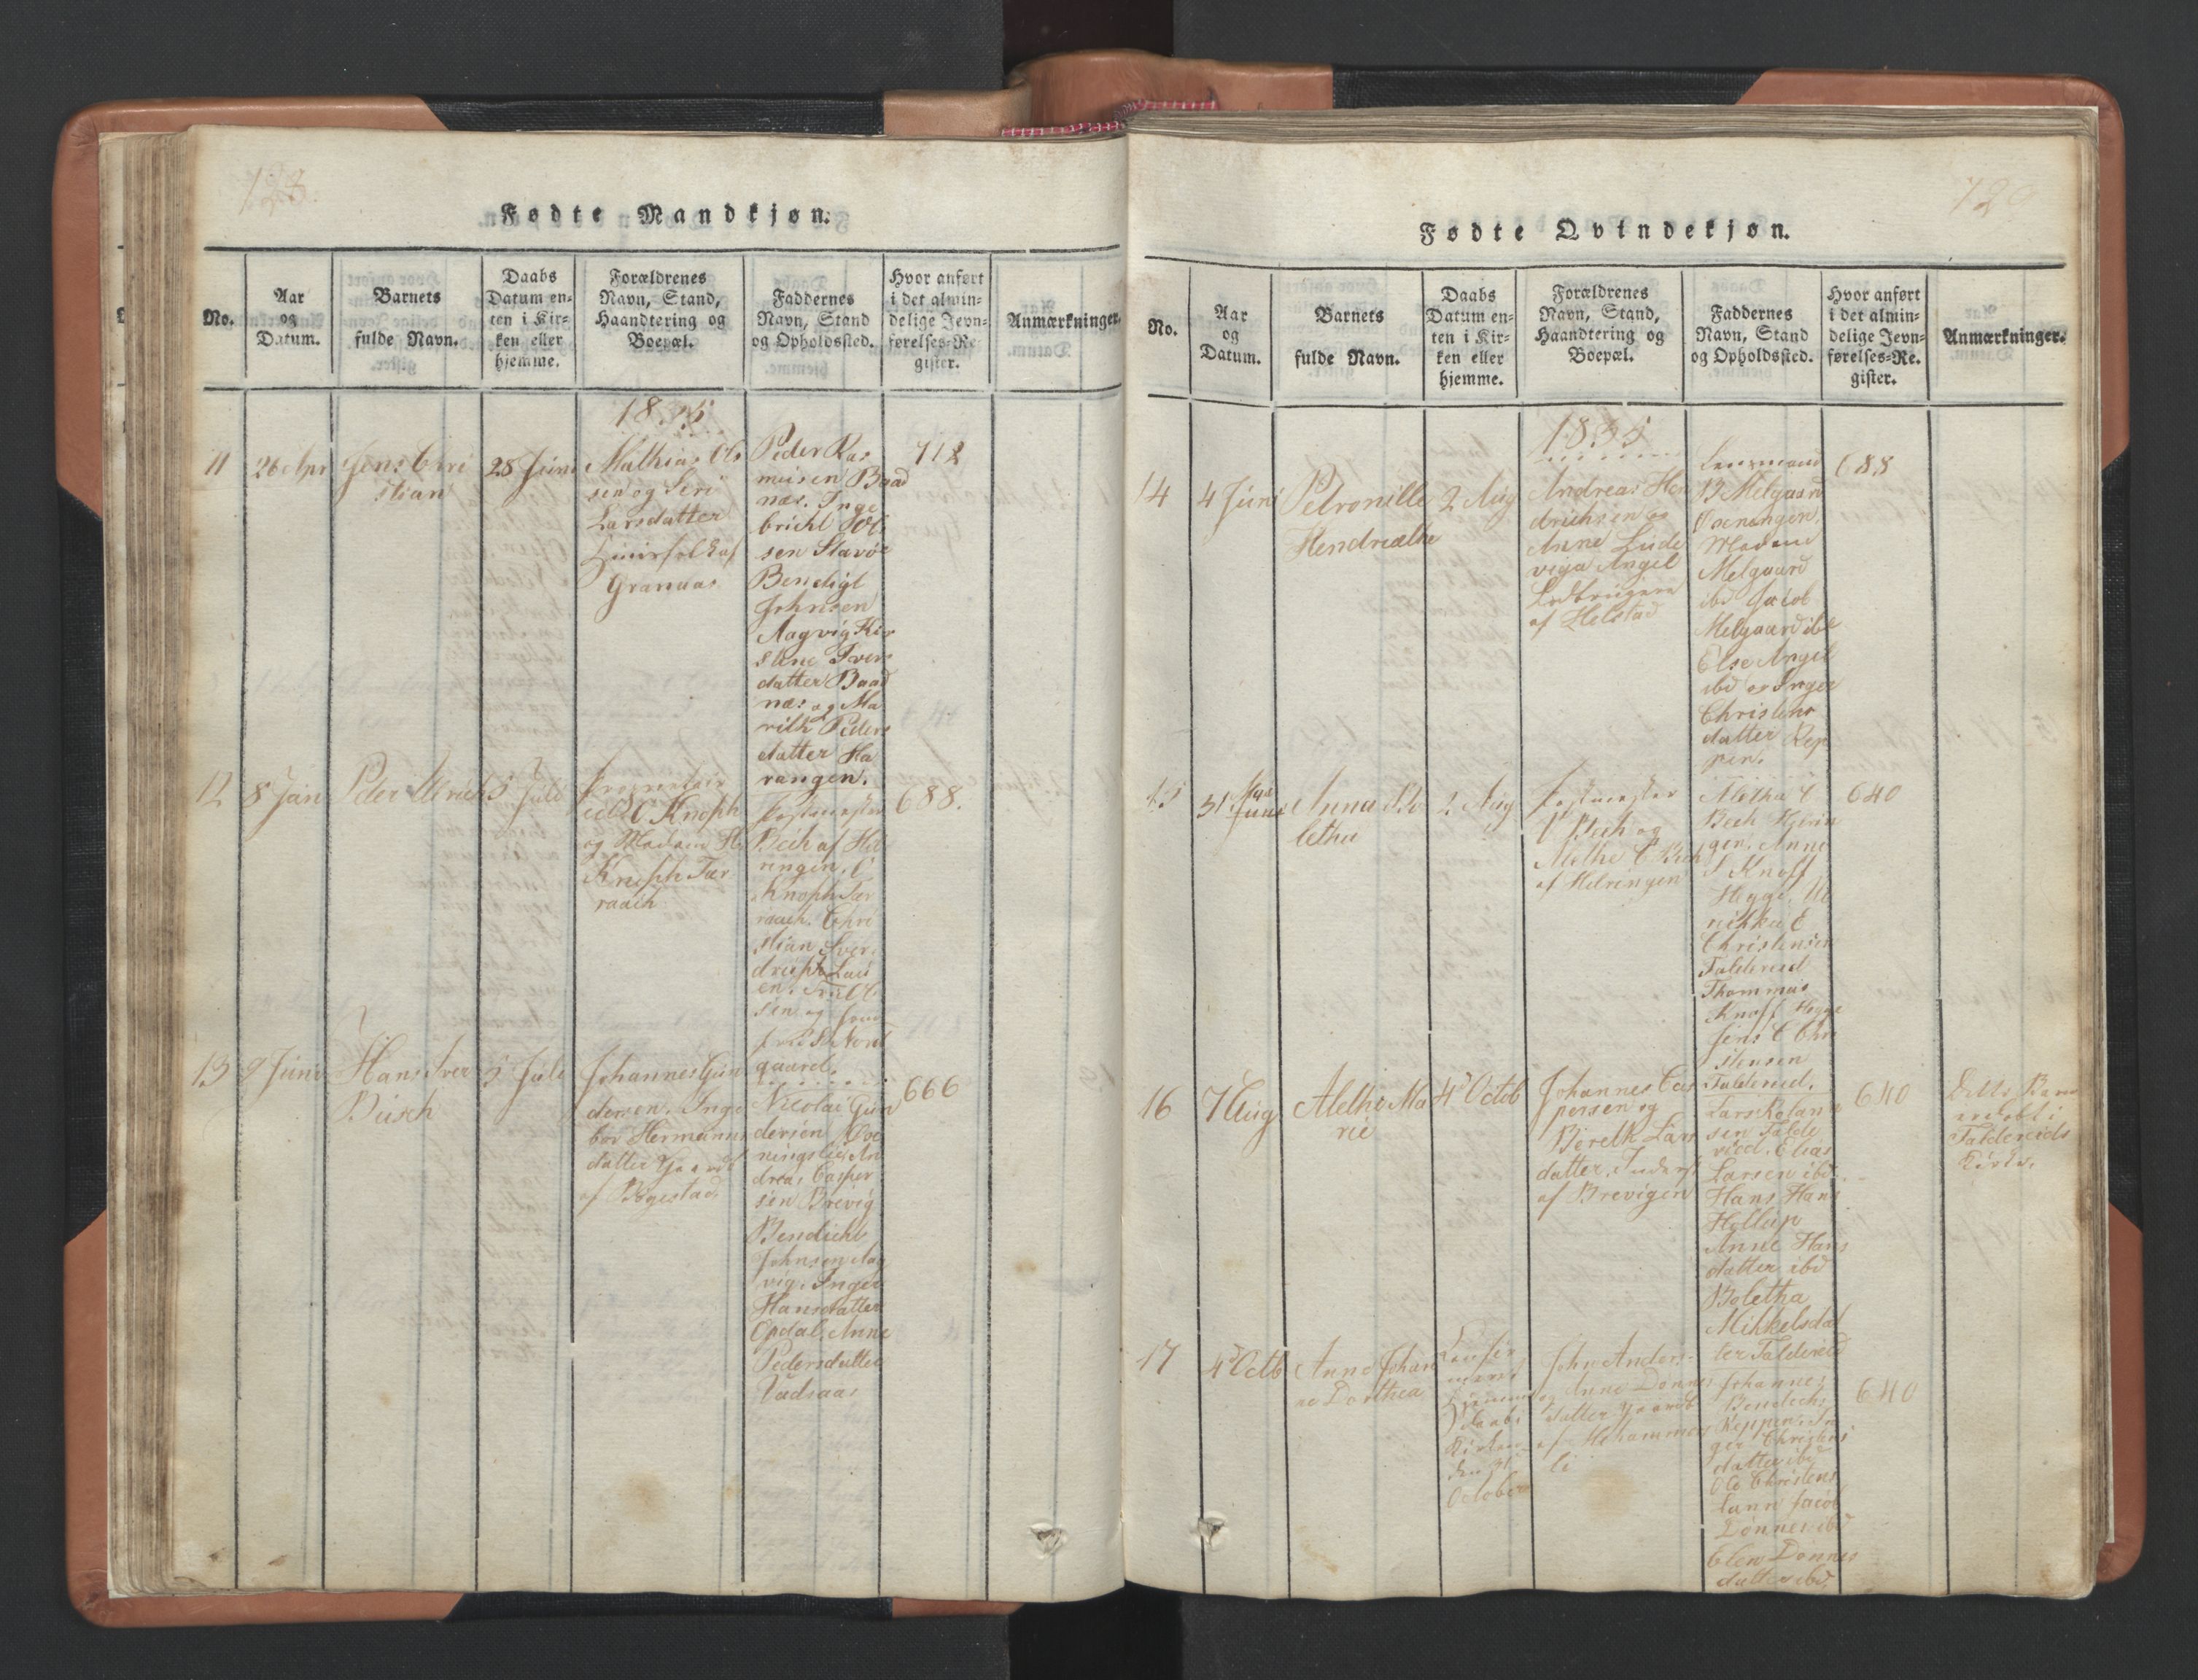 123.
Fødte Mandkjøn.
No.
Aar
og
Datum.
Barnets
fulde Navn.
Daabs
Datum en-
ten i Kir-
ken eller
hjemme.
Forældrenes
Navn, Stand,
Haandtering og
Boepæl.
Faddernes
Navn, Stand
og Opholdssted.
Hvor anført
i det almin-
delige Jevn-
førelses-Re-
gister.
Anmærkninger.
1835
11
26 Apr
Jens Chri
stian
28 Juni
Mathias Ols
sen og Seri
Larsdatter
Huusfolk af
Granaas
Peder Ras
musen Baad
næs. Inge
bricht Ol
sen Flavøe
Bendigt
Johnsen
Aagvig Kir
stine Iver
datter Baad
næs og Ma
rith Peders
datter Ha
rangen.
712
12
8 Jan
Peder Ulrich
5 Juli
C. Knoph
og Madam H.
Knoph Tær
raach
Postmester
Bech af Hel
ringen, C
Knoph Tær
raach. Chri
stian Sver
drup
sen og
Nord
gaard.
688.
13
9 Juni
Hans Iver
Busch
5 Juli
Johannes Gun
dersen. Inge
bor Hermanns
datter Gaardb
af Bogestad.
Nicolai Gun
dersen Ove
ningslie. An
dreas Casper
sen Brevig
Bendicht
Johnsen Aag
vig. Inger
Hansdatter
Opdal. Anne
Pedersdatter
Vadsaas
666
Fødte Qvindekjøn.
No.
Aar
og
Datum.
Barnets
fulde Navn.
Daabs
Datum en-
ten i Kir-
ken eller
hjemme.
Forældrenes
Navn, Stand,
Haandtering og
Boepæl.
Faddernes
Navn, Stand
og Opholdssted.
Hvor anført
i det almin-
delige Jevn-
førelses-Re-
gister.
Anmærkninger.
1835
14
4 Juni
Petronille
Hendrichke
2 Aug
Andreas Hen
drichsen og
Anne Lude
viga Angel
Lodbrugere
af Helstad
Lensmand
B Melgaard
Oseningen,
Madam
Melgaard
ibd Jacob
Melgaard ibd
Else Angel
ibd og Inger
Christens
datter Rep
pen.
688
15
31 Mai
Juni
Anna Bo
letha
2 Aug
Postmester
C Bech og
Alethe C Bech
af Helringen
Aletha C
Bech Helrin
gen. Anne
S Knoff
Hegge. Ul
richka C
Christensen
Faldereid
Thommas
Knoff Hegge
Jens C Chri
stensen
Faldereid.
640
16
7 Aug
Alethe Ma
rie
4d Octob
Johannes Cas
persen og
Bereth Lars
datter. Inderst
af Brevigen
Lars Rolan
sen Falde
reed. Elias
Larsen ibd.
Hans Hans
Hollup
Anne Hans
datter ibd
Boletha
Mikkelsdat
ter Faldereid
640
Dette Barn
er døbt i
Faldereids
Kirke.
17
4d Octb
Anne Johan
ne Dorthea
Daabs i
Kirken
October
John Anders-
og Anne Dønnes
datter Gaardb
af Hehammer
li
Johannes
Bendichs
Reppen. In
ger Christens
datter ibd
Ole Christens
Lann Jacob
Dønnes ibd
Elen Dønnes
datter ibd.
640